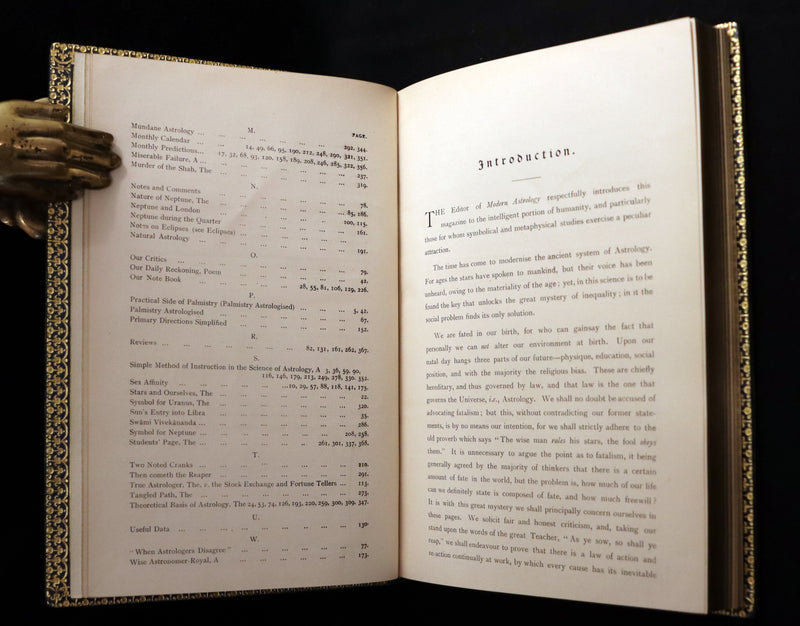 M.
PAGE.
Mundane Astrology ... ... ... ... ... ... 292, 344.
Monthly Calendar ... 14, 49, 66, 95, 190, 212, 248, 290, 321, 351.
Monthly Predictions ... 17, 32, 68, 93, 120, 158, 189, 208, 246, 285, 322, 356.
Miserable Failure, A ... ... ... ... ... 237.
Murder of the Shah, The ... ... ... ... ... 319.
N.
Notes and Comments ... ... ... ... ... 78.
Nature of Neptune, The ... ... ... ... ... 85, 186.
Neptune and London ... ... ... ... ... 100, 115.
Neptune during the Quarter ... ... ... ... 161.
Notes on Eclipses (see Eclipses) ... ... ... ...
Natural Astrology ... ... ... ... ... 191.
O.
Our Critics ... ... ... ... ... ... 79.
Our Daily Reckoning, Poem ... ... ... ... 42.
Our Note Book ... ... ... 28, 55, 81, 106, 129, 226.
P.
Practical Side of Palmistry (Palmistry Astrologised) ... ... ... 5, 42.
Palmistry Astrologised ... ... ... ... ... 67.
Primary Directions Simplified ... ... ... ... 152.
R.
Reviews ... ... ... ... 82, 131, 161, 262, 367.
S.
Simple Method of Instruction in the Science of Astrology, A 3, 36, 59, 90,
116, 146, 179, 213, 249, 278, 330, 352.
Sex Affinity ... ... ... ... 10, 29, 57, 88, 118, 141, 173.
Stars and Ourselves, The ... ... ... ... ... 22.
Symbol for Uranus, The ... ... ... ... ... 320.
Sun's Entry into Libra ... ... ... ... ... 33.
Swâmi Vivekânanda ... ... ... ... ... 286.
Symbol for Neptune ... ... ... ... 208, 258.
Students' Page, The ... ... ... 261, 301, 337, 368.
T.
Two Noted Cranks ... ... ... ... ... 210.
Then cometh the Reaper ... ... ... ... ... 296.
True Astrologer, The, v. the Stock Exchange and Fortune Tellers ... 113.
Tangled Path, The ... ... ... ... ... 275.
Theoretical Basis of Astrology, The 24, 53, 74, 126, 193, 220, 259, 300, 309, 347.
U.
Useful Data ... ... ... ... ... ... 130.
W.
"When Astrologers Disagree" ... ... ... ... 77.
Wise Astronomer-Royal, A ... ... ... ... 173.
Introduction.
THE Editor of Modern Astrology respectfully introduces this
magazine to the intelligent portion of humanity, and particularly
those for whom symbolical and metaphysical studies exercise a peculiar
attraction.
The time has come to modernise the ancient system of Astrology.
For ages the stars have spoken to mankind, but their voice has been
unheard, owing to the materiality of the age; yet, in this science is to be
found the key that unlocks the great mystery of inequality; in it the
social problem finds its only solution.
We are fated in our birth, for who can gainsay the fact that
personally we can not alter our environment at birth. Upon our
natal day hangs three parts of our future—physique, education, social
position, and with the majority the religious bias. These are chiefly
hereditary, and thus governed by law, and that law is the one that
governs the Universe, i.e., Astrology. We shall no doubt be accused of
advocating fatalism; but this, without contradicting our former state-
ments, is by no means our intention, for we shall strictly adhere to the
old proverb which says "The wise man rules his stars, the fool obeys
them." It is unnecessary to argue the point as to fatalism, it being
generally agreed by the majority of thinkers that there is a certain
amount of fate in the world, but the problem is, how much of our life
can we definitely state is composed of fate, and how much freewill?
It is with this great mystery we shall principally concern ourselves in
these pages. We solicit fair and honest criticism, and, taking our
stand upon the words of the great Teacher, "As ye sow, so shall ye
reap," we shall endeavour to prove that there is a law of action and
re-action continually at work, by which every cause has its inevitable